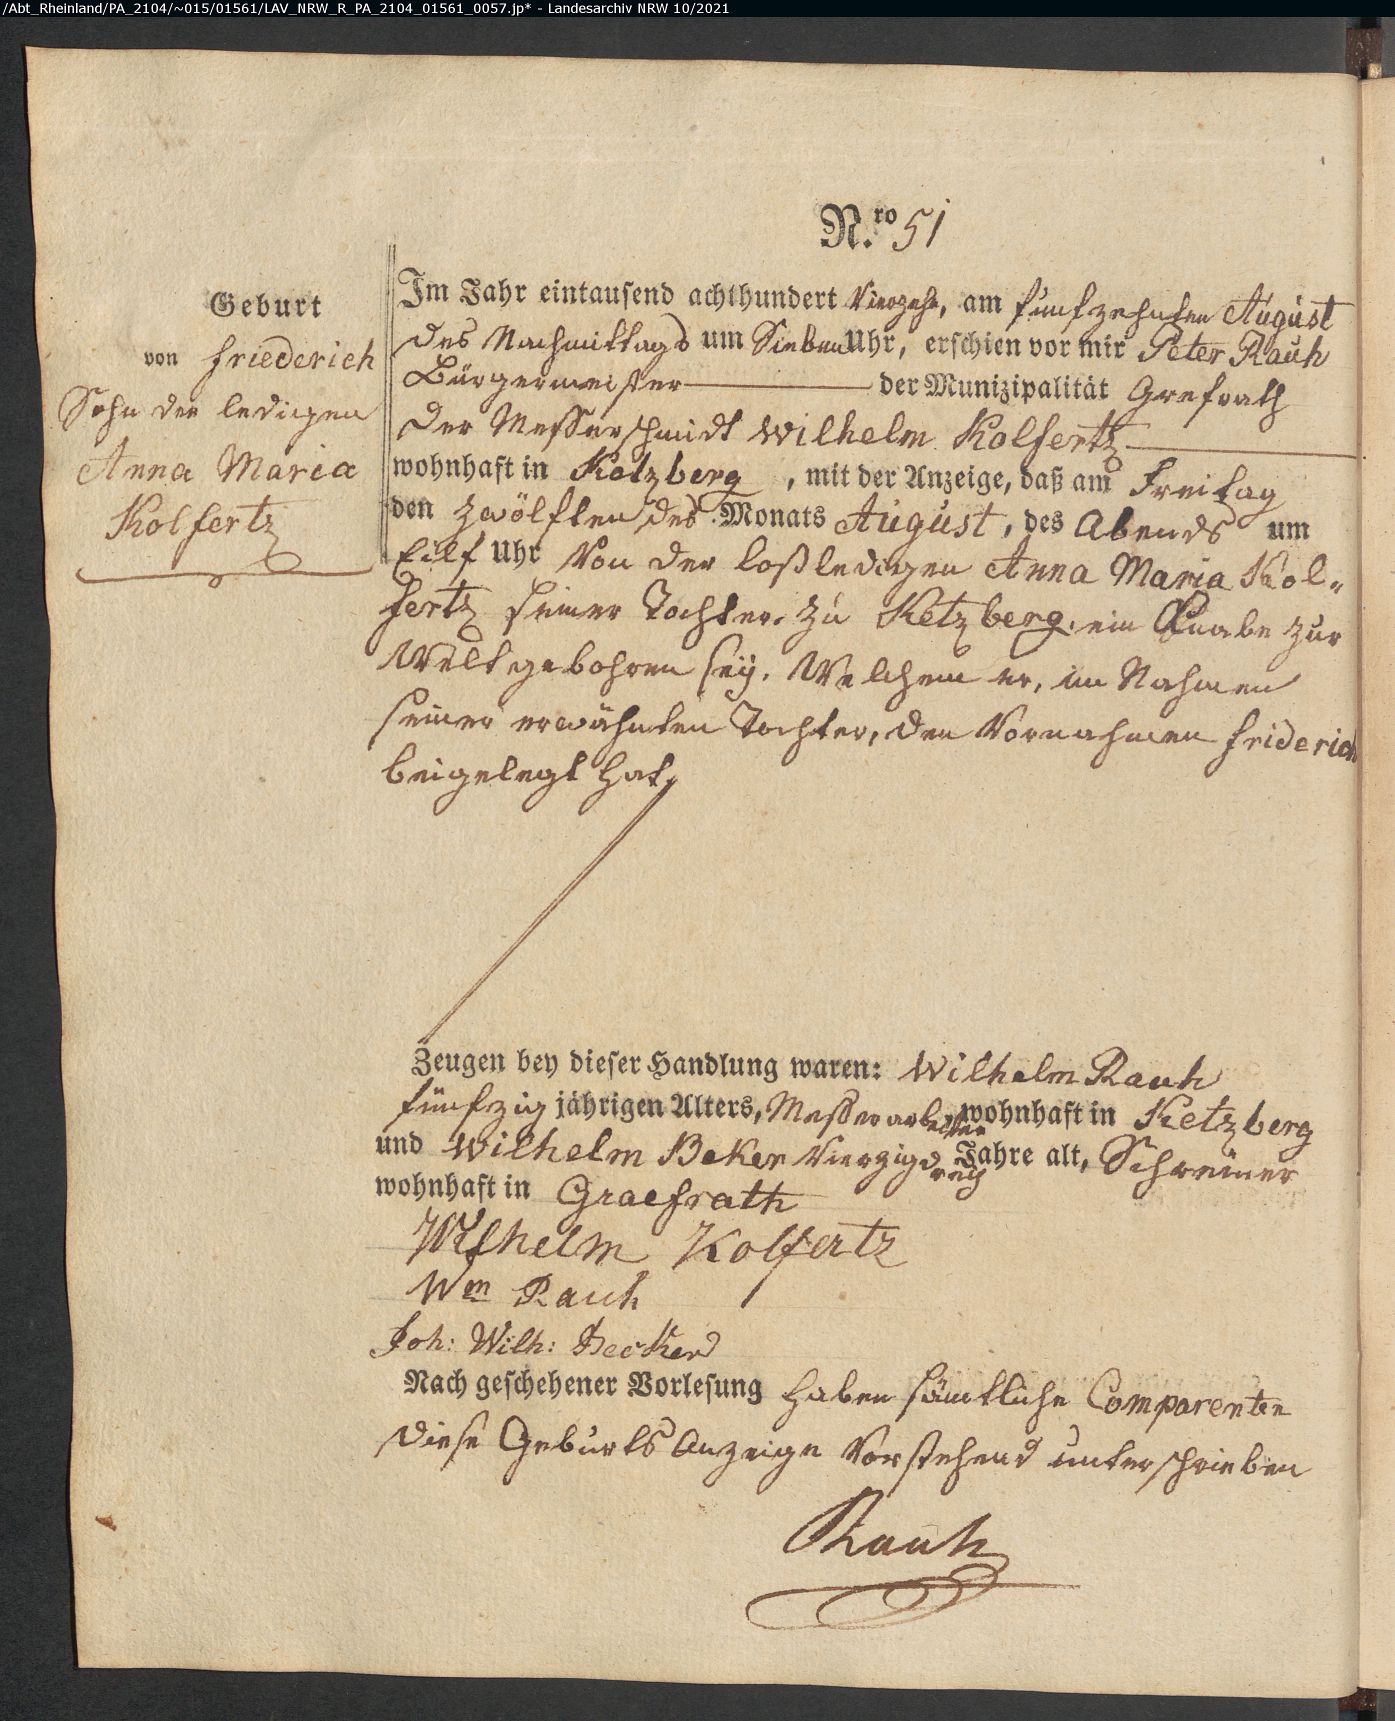 /Abt_Rheinland/PA_2104/~015/01561/LAV_NRW_R_PA_2104_01561_0057.jp* - Landesarchiv NRW 10/2021
N.ro 51
Geburt
von Friederich
Sohn der ledigen
Anna Maria
Kolfertz
Im Jahr eintausend achthundert Vierzehn, am fünfzehnten August
des Nachmittags um Sieben Uhr, erschien vor mir Peter Rauh
Bürgermeister der Munizipalität Grefrath
der Messerschmidt Wilhelm Kolfertz
wohnhaft in Ketzberg, mit der Anzeige, daß am Freitag
den zwölften des Monats August, des Abends um
Eilf Uhr Von der loßledigen Anna Maria Kol-
fertz seiner Tochter, zu Ketzberg, ein Knabe zur
Welt gebohren seÿ. Welchem er, im Nahmen
seiner erwähnten Tochter, den Vornahmen Friderich
beigelegt hat.
Zeugen bey dieser Handlung waren: Wilhelm Rauh
fünfzig jährigen Alters, Messerarbeiter wohnhaft in Ketzberg
und Wilhelm Beker Vierzig dreÿ Jahre alt, Schreiner
wohnhaft in Graefrath
Wilhelm Kolfertz
Wm Rauh
Joh: Wilh: Becker
Nach geschehener Vorlesung haben sämtliche Comparenten
diese Geburts Anzeige Vorstehend unterschrieben
Rauh